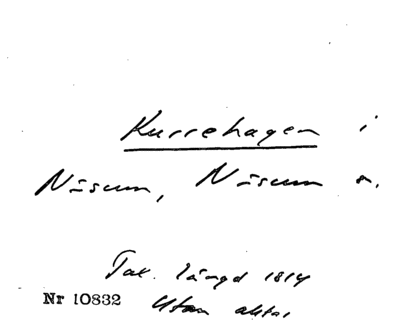 Kurrehagen i
Näsum, Näsum s.
Tax. längd 1814
Nr 10832 Utan aktas